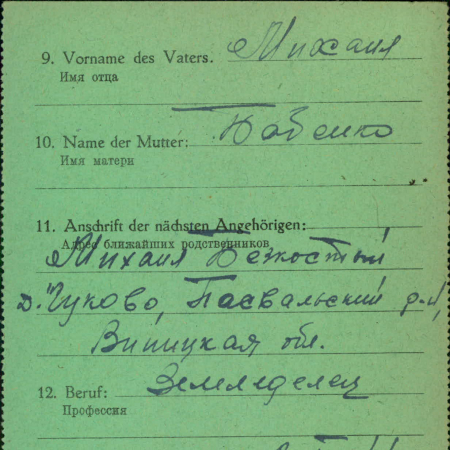 9. Vorname des Vaters. Михаил
Имя отца
10. Name der Mutter: Бабенко
Имя матери
11. Anschrift der nächsten Angehörigen:
Адрес ближайших родственников
Михаил Безкостый
д. Чуково,
Виницкая обл.
12. Beruf: Земледелец
Профессия